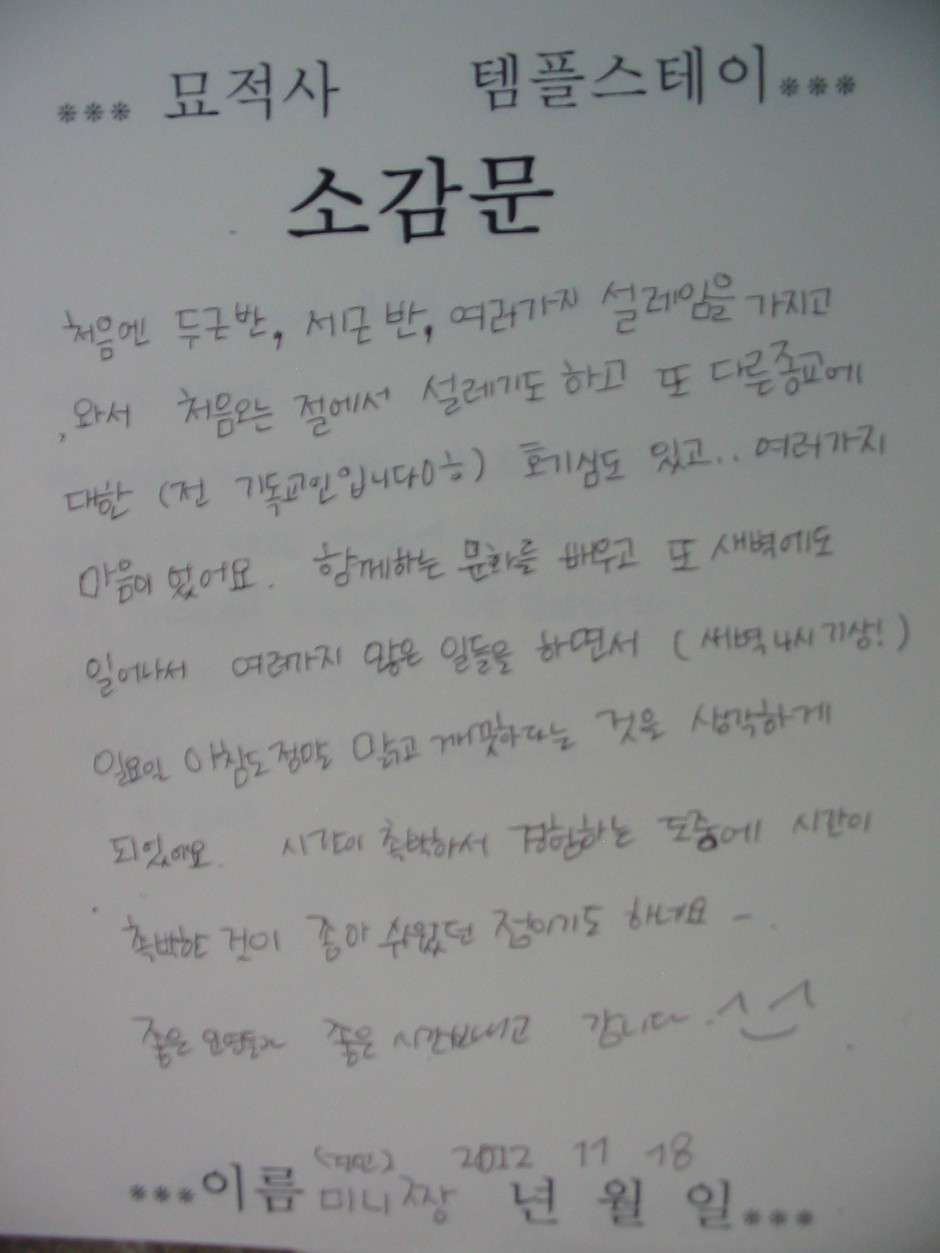 *** 묘적사 템플스테이***
소감문
처음엔 두근반, 세근반, 여러가지 설레임을 가지고
와서 처음오는 절에서 설레기도 하고 또 다른종교에
대한 (전 기독교인입니다ㅇㅎ) 호기심도 있고.. 여러가지
마음이 있어요. 함께하는 문화를 배우고 또 새벽에도
일어나서 여러가지 많은 일들을 하면서 (새벽4시기상!)
일요일 아침도 정말 맑고 깨끗하다는 것을 생각하게
되었어요. 시간이 촉박하서 경험하는 도중에 시간이
촉박한 것이 좀아쉬웠던 점이기도 하네요 -.
좋은 인연들과 좋은 시간보내고 갑니다.^_^
2012 11 18
***이름 미니짱 년 월 일***